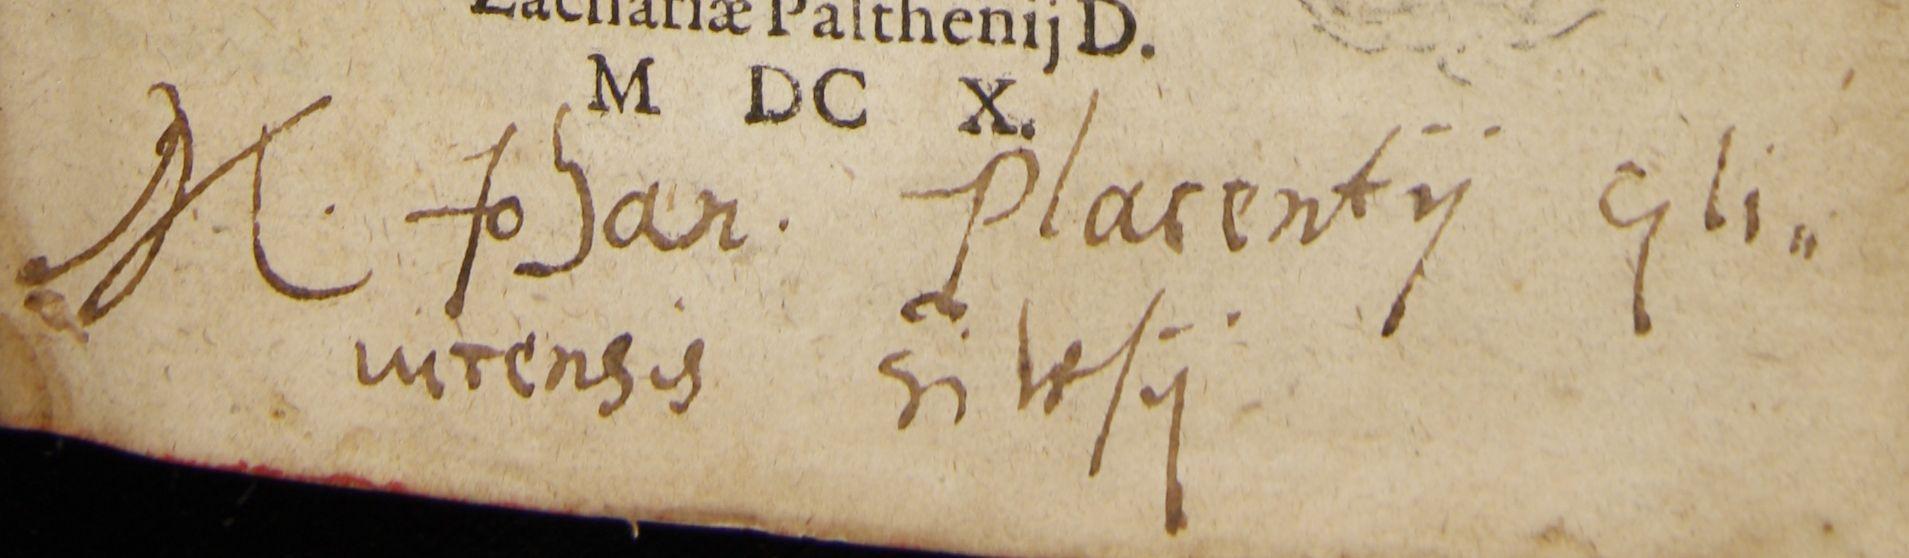 Zachariæ Palthenij D.
M DC X.
M. Johan. Placentij Gli„
vicensis Silesij